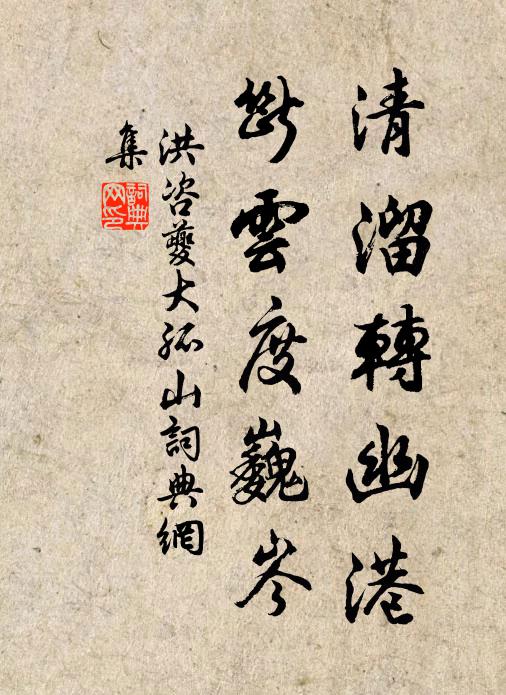 清溜轉幽港
斷雲度巍岑
洪咨夔大孤山詞典網
集
詞典
网印